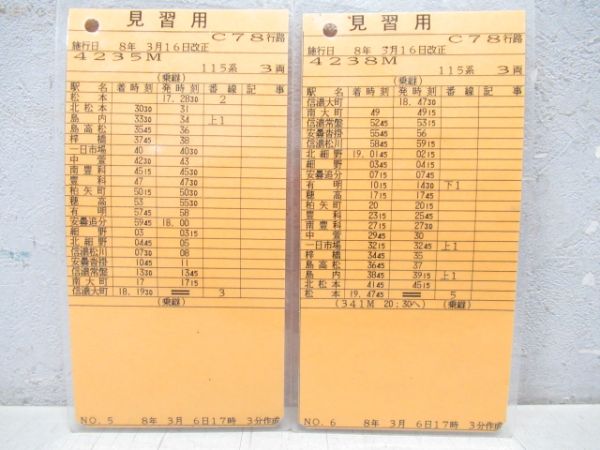 見習用
C78行路
施行日 8年 3月16日改正
4235M
115系 3両
(乗継)
駅名 着時刻 発時刻 番線 記事
松本 17.2830 2
北松本 3030 31
島内 3330 34 上1
島高松 3545 36
梓橋 3745 38
一日市場 40 4030
中萱 4230 43
南豊科 4515 4530
豊科 47 4730
柏矢町 5015 5030
穂高 53 5530
有明 5745 58
安曇追分 5945 18.00
細野 03 0315
北細野 0445 05
信濃松川 0730 08
安曇沓掛 1045 11
信濃常盤 1330 1345
南大町 17 1715
信濃大町 18.1930 3
(乗継)
NO.5 8年 3月 6日17時 3分作成
見習用
C78行路
施行日 8年 3月16日改正
4238M
115系 3両
(乗継)
駅名 着時刻 発時刻 番線 記事
信濃大町 18.4730
南大町 49 4915
信濃常盤 5245 5315
安曇沓掛 5545 56
信濃松川 5845 5915
北細野 19.0145 0215
細野 0345 0415
安曇追分 0715 0745
有明 1015 1430 下1
穂高 1715 1745
柏矢町 20 2015
豊科 2315 2545
南豊科 2715 2730
中萱 2945 30
一日市場 3215 3245 上1
梓橋 3445 35
島高松 3645 37
島内 3845 3915 上1
北松本 4145 4515
松本 19.4745 5
(341M 20:30へ) (乗継)
NO.6 8年 3月 6日17時 3分作成